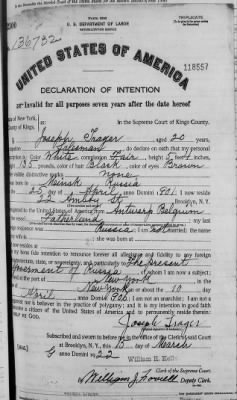 TRIPLICATE
U. S. DEPARTMENT OF LABOR
NATURALIZATION SERVICE
136732
UNITED STATES OF AMERICA
118557
DECLARATION OF INTENTION
Invalid for all purposes seven years after the date hereof
of New York,
County of Kings,
In the Supreme Court of Kings County.
Joseph Trager aged 20 years,
occupation Salesman do declare on oath that my personal
description is: Color White, complexion Fair, height 5 feet 4 inches,
135 pounds, color of hair Black, color of eyes Brown
visible distinctive marks none
Minsk Russia
25 day of April, anno Domini 1901; I now reside
22 Amboy St.
to the United States of America from Antwerp Belgium
Fatherland; my last
Russia; I am not married; the name
she was born at
for residence at
bona fide intention to renounce forever all allegiance and fidelity to any foreign
state, or sovereignty, and particularly to The present
Government of Russia of whom I am now a subject;
New York, in the
New York, on or about the 10 day
April, anno Domini 1920; I am not an anarchist; I am not a
nor a believer in the practice of polygamy; and it is my intention in good faith
become a citizen of the United States of America and to permanently reside therein:
HELP ME GOD.
Joseph Trager
Subscribed and sworn to before me in the office of the Clerk of said Court
at Brooklyn, N. Y., this 15 day of March
anno Domini 1922
William E. Kelly
Clerk of the Supreme Court.
By William J. Powell, Deputy Clerk.